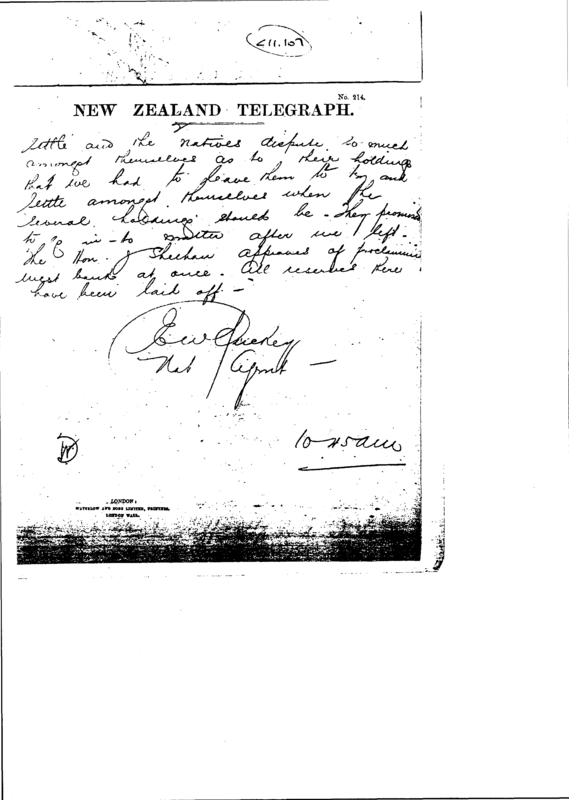 C11.107
No. 214.
NEW ZEALAND TELEGRAPH.
settle and the natives dispute so much
amongst themselves as to their holdings
that we had to leave them to try and
settle amongst themselves when the
several holdings should be - They promised
to go in-to matter after we left -
The Hon. J Sheehan approves of proclaiming
west bank at once. All reserves here
have been laid off -
Nat Agent -
10.45am
LONDON:
WATERLOW AND SONS LIMITED, PRINTERS,
LONDON WALL.